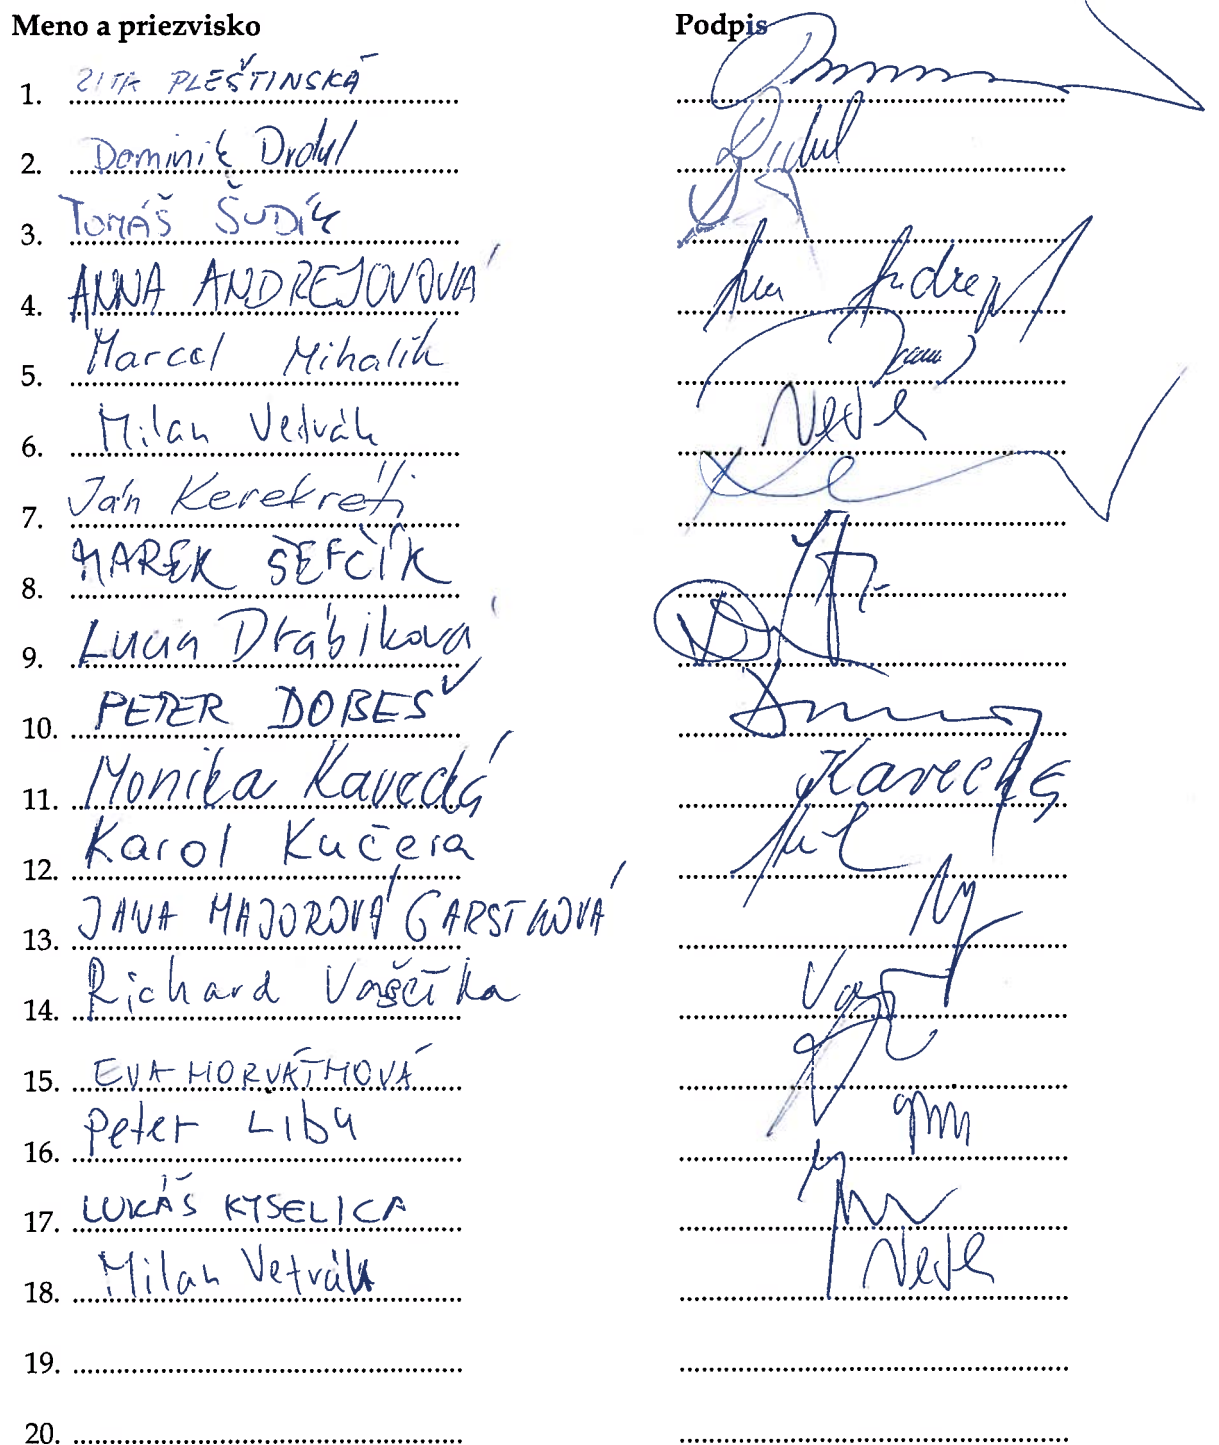 Meno a priezvisko Podpis
1. ZITA PLEŠTINSKÁ
2. Dominik Drdul
3. TOMÁŠ ŠUDÍK
4. ANNA ANDREJOVOVÁ
5. Marcel Mihalik
6. Milan Vetrák Vetrák
7. Ján Kerekréti
8. MAREK ŠEFČÍK
9. Lucia Drábiková
10. PETER DOBEŠ
11. Monika Kavecká Kavecká
12. Karol Kučera
13. JANA MAJOROVÁ GARSTKOVÁ
14. Richard Vaščítka
15. EVA HORVÁTHOVÁ
16. Peter Liba
17. LUKÁŠ KYSELICA
18. Milan Vetrák
19.
20.